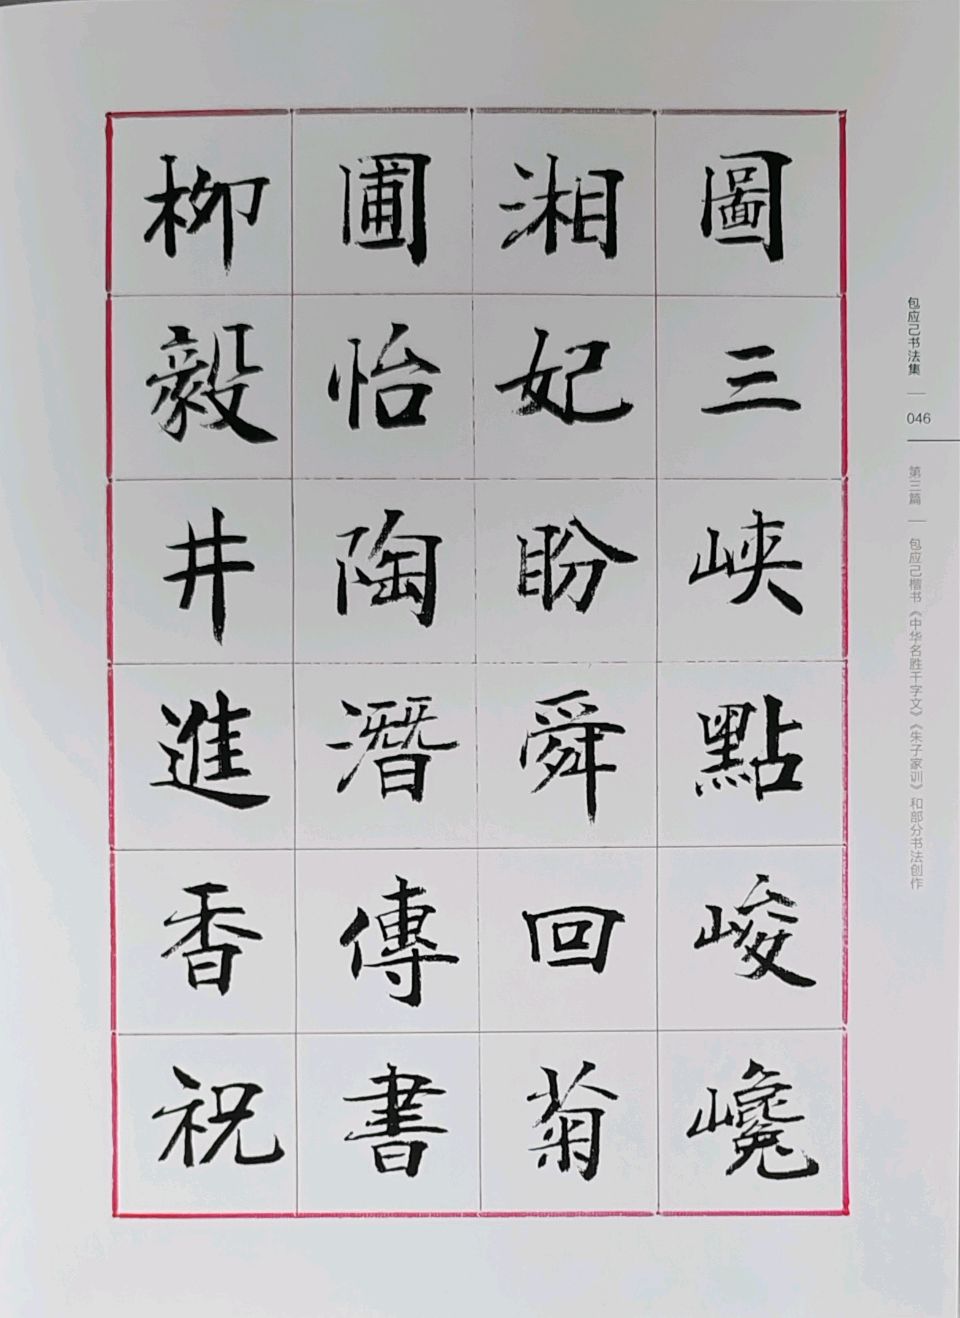 圖三峽點峻巉
湘妃盼舜回菊
圃怡陶潛傳書
柳毅井進香祝
包应己书法集
046
第三篇
包应己楷书《中华名胜千字文》《朱子家训》和部分书法创作